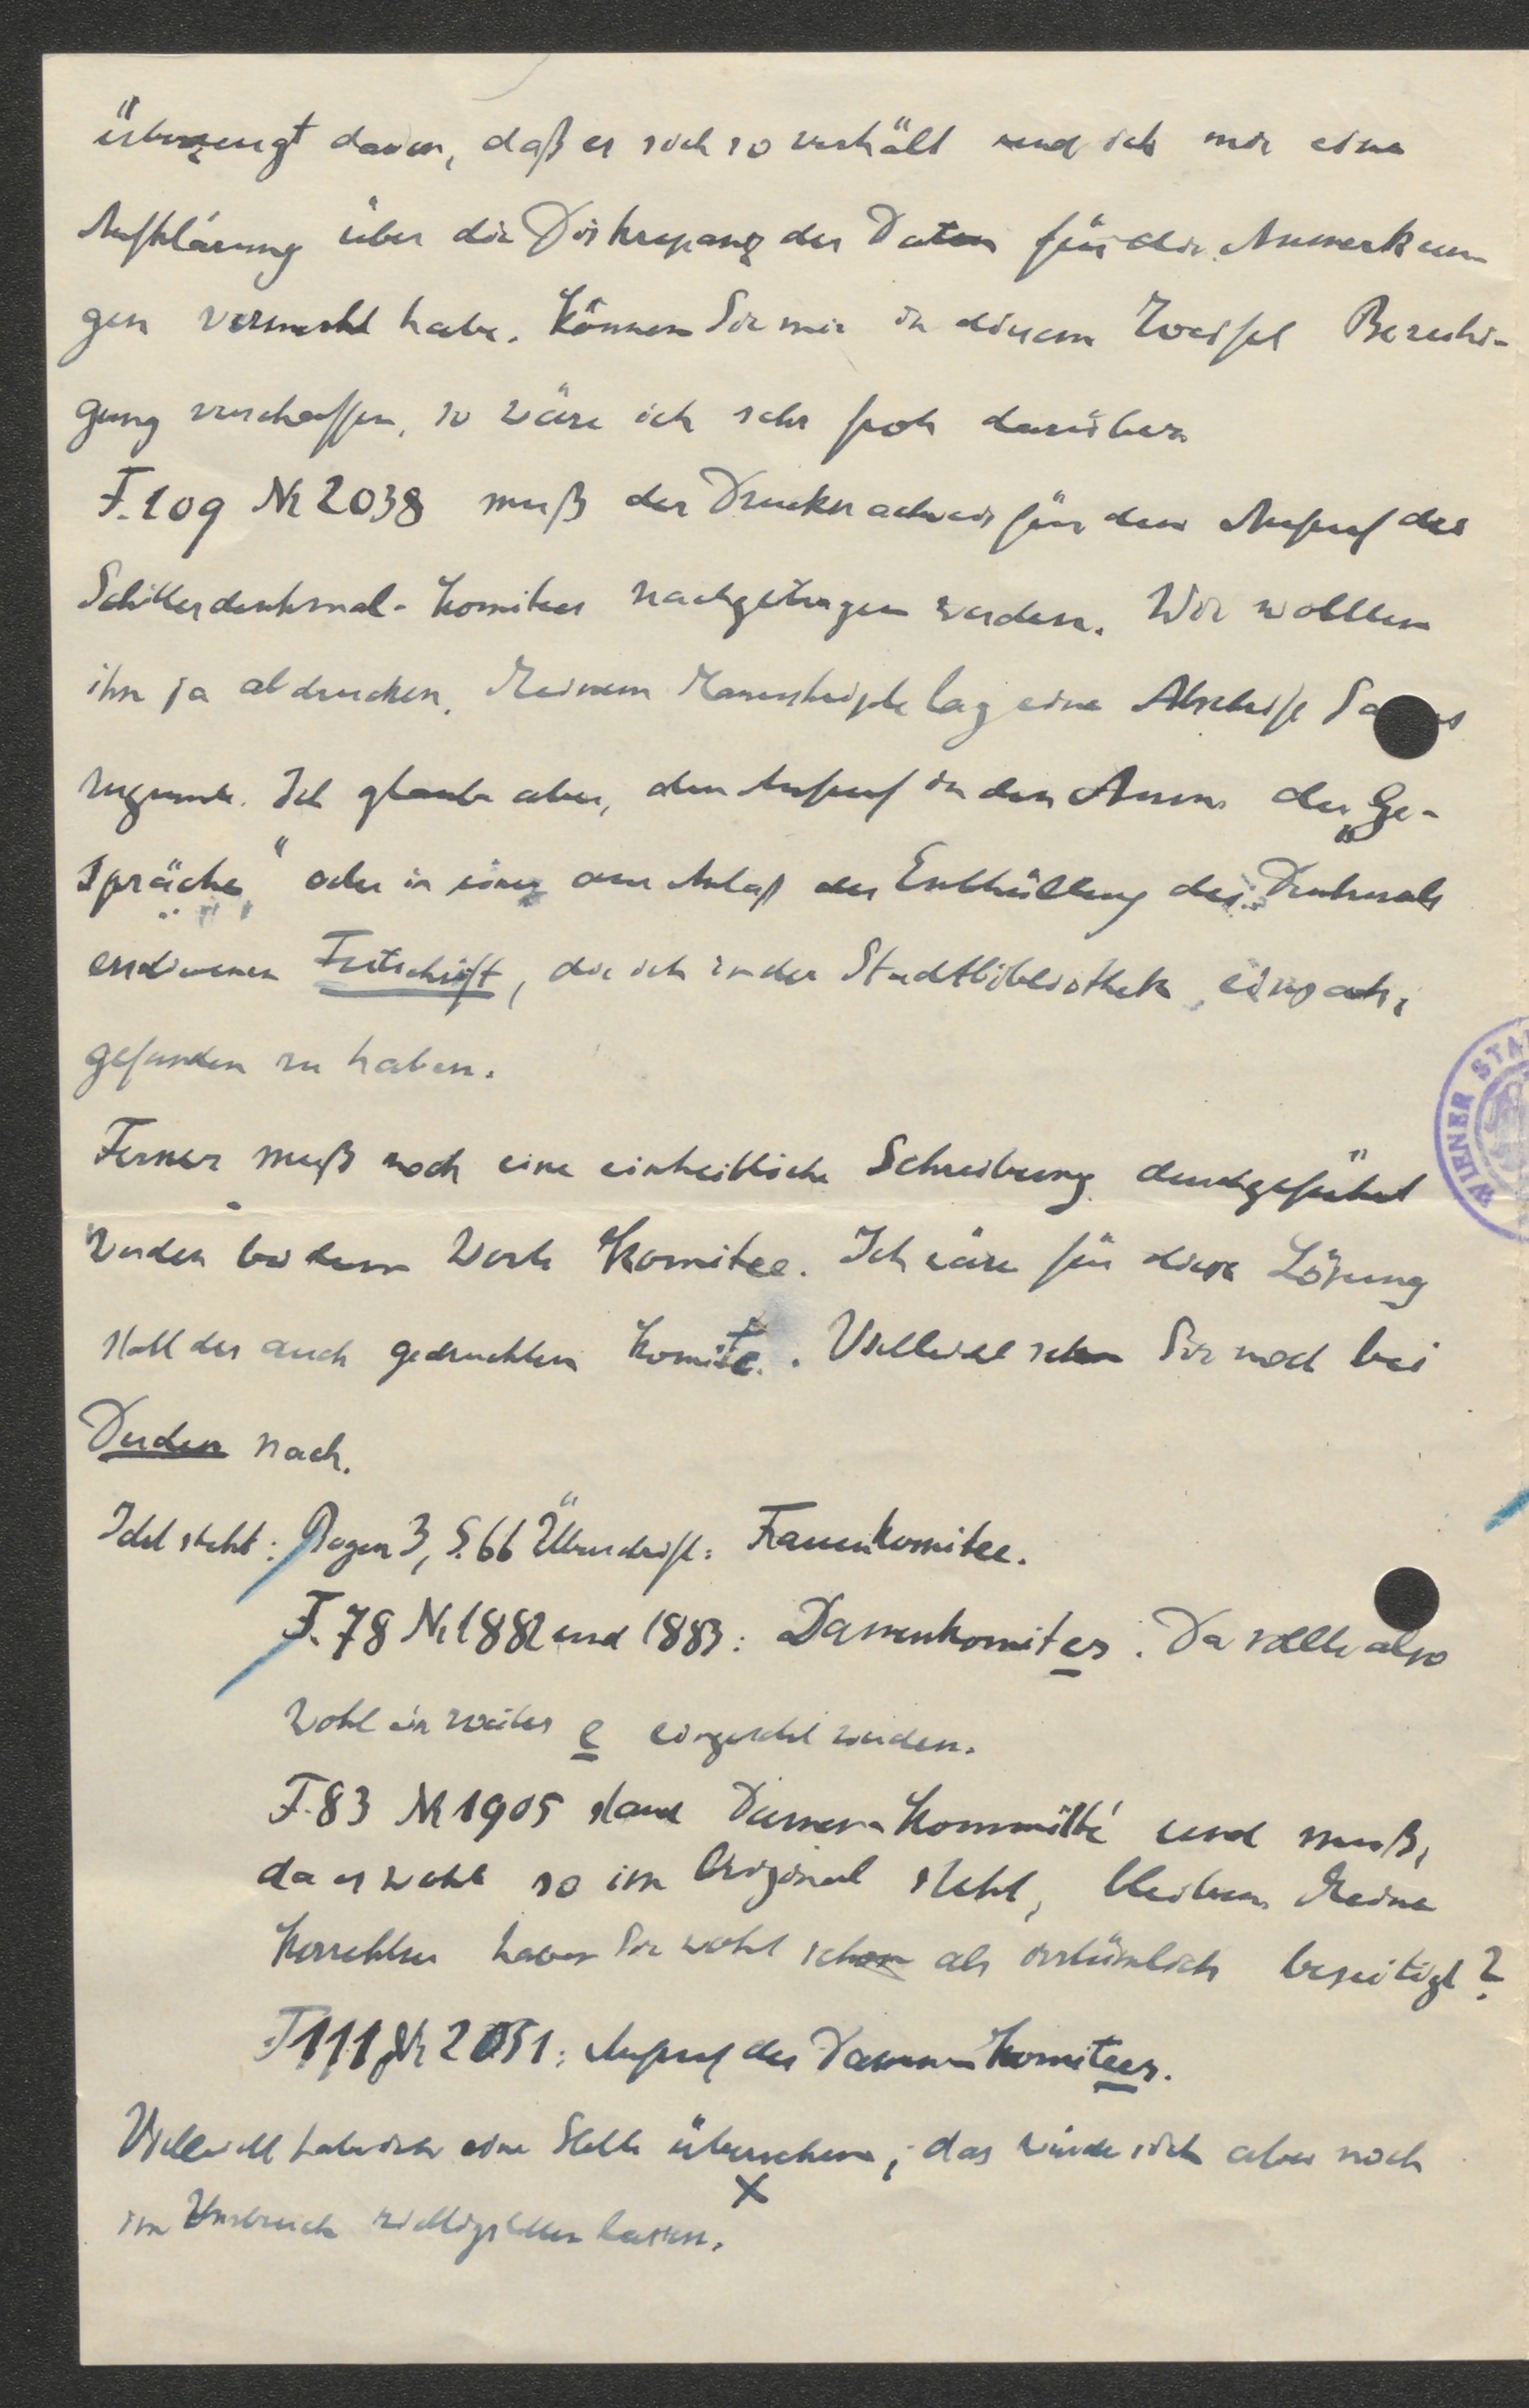 überzeugt davon, daß es sich so verhält und ich mir eine
Aufklärung über die Diskrepanz der Daten für die Anmerkun-
gen vermerkt habe. Können Sie mir in diesem Zweifel Beruhi-
gung verschaffen, so wäre ich sehr froh darüber.
F. 109 Nr 2038 muß der Drucknachweis für den Aufruf des
Schillerdenkmal-Komitees nachgetragen werden. Wir wollten
ihn ja abdrucken. Meinem Manuskripte lag eine Abschrift
zugrunde. Ich glaube aber, den Aufruf in den Anm. der „Ge-
spräche“ oder in einer aus Anlaß der Enthüllung des Denkmals
erschienenen Festschrift, die ich in der Stadtbibliothek einsah,
gefunden zu haben.
Ferner muß noch eine einheitliche Schreibung durchgeführt
werden bei dem Worte Komitee. Ich wäre für diese Lösung
statt des auch gedruckten Komite. Vielleicht sehen Sie noch bei
Duden nach.
Jetzt steht: Bogen 3, S. 66 Überschrift: Frauenkomitee.
F. 78 Nr 1882 und 1883: Damenkomites. Da sollte also
wohl ein zweites e eingesetzt werden.
F. 83 Nr 1905 stand Damen-Kommitté und muß,
da es wohl so im Original steht, bleiben. Meine
Korrektur haben Sie wohl schon als irrtümlich beseitigt?
F 111 Nr 2051: Aufruf des Damenkomitees.
Vielleicht habe ich eine Stelle übersehen; das würde sich aber noch
im Umbruch richtigstellen lassen.
X
WIENER STA